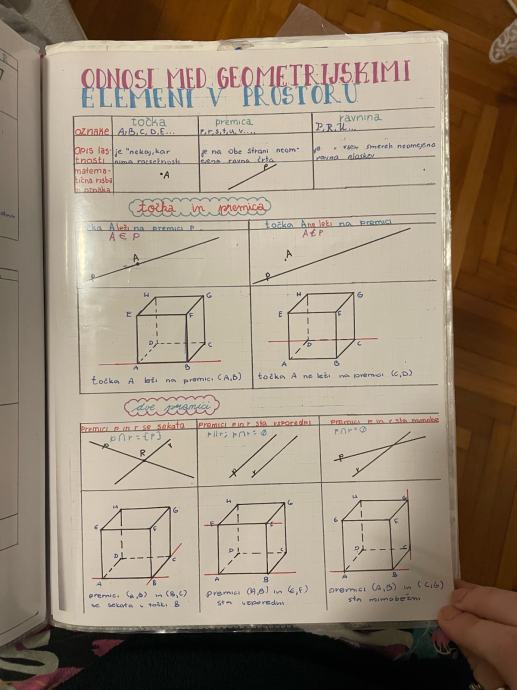 ODNOSI MED GEOMETRIJSKIMI
ELEMENTI V PROSTORU
točka premica ravnina
oznake A, B, C, D, E... p, r, s, t, u, v... P, R, U...
opis las- je "nekaj, kar je na obe strani neom- v vseh smereh neomejena
tnosti nima razsežnosti ejena ravna črta ravna ploskev
matema-
tična risba
in oznaka
A
p
točka in premica
točka A leži na premici p točka A ne leži na premici p
A ∈ p A ∉ p
A
p
A
p
H G
E F
D C
A B
H G
E F
D C
A B
točka A leži na premici (A,B) točka A ne leži na premici (C,D)
dve premici
Premici p in r se sekata Premici p in r sta vzporedni Premici p in r sta mimobe
p∩r = {R} p||r; p∩r = ∅ p∩r = ∅
p R r
p r
p r
H G
E F
D C
A B
H G
E F
D C
A B
H G
E F
D C
A B
premici (A,B) in (B,C) premici (A,B) in (E,F) premici (A,B) in (C,G)
se sekata v točki B sta vzporedni sta mimobežni